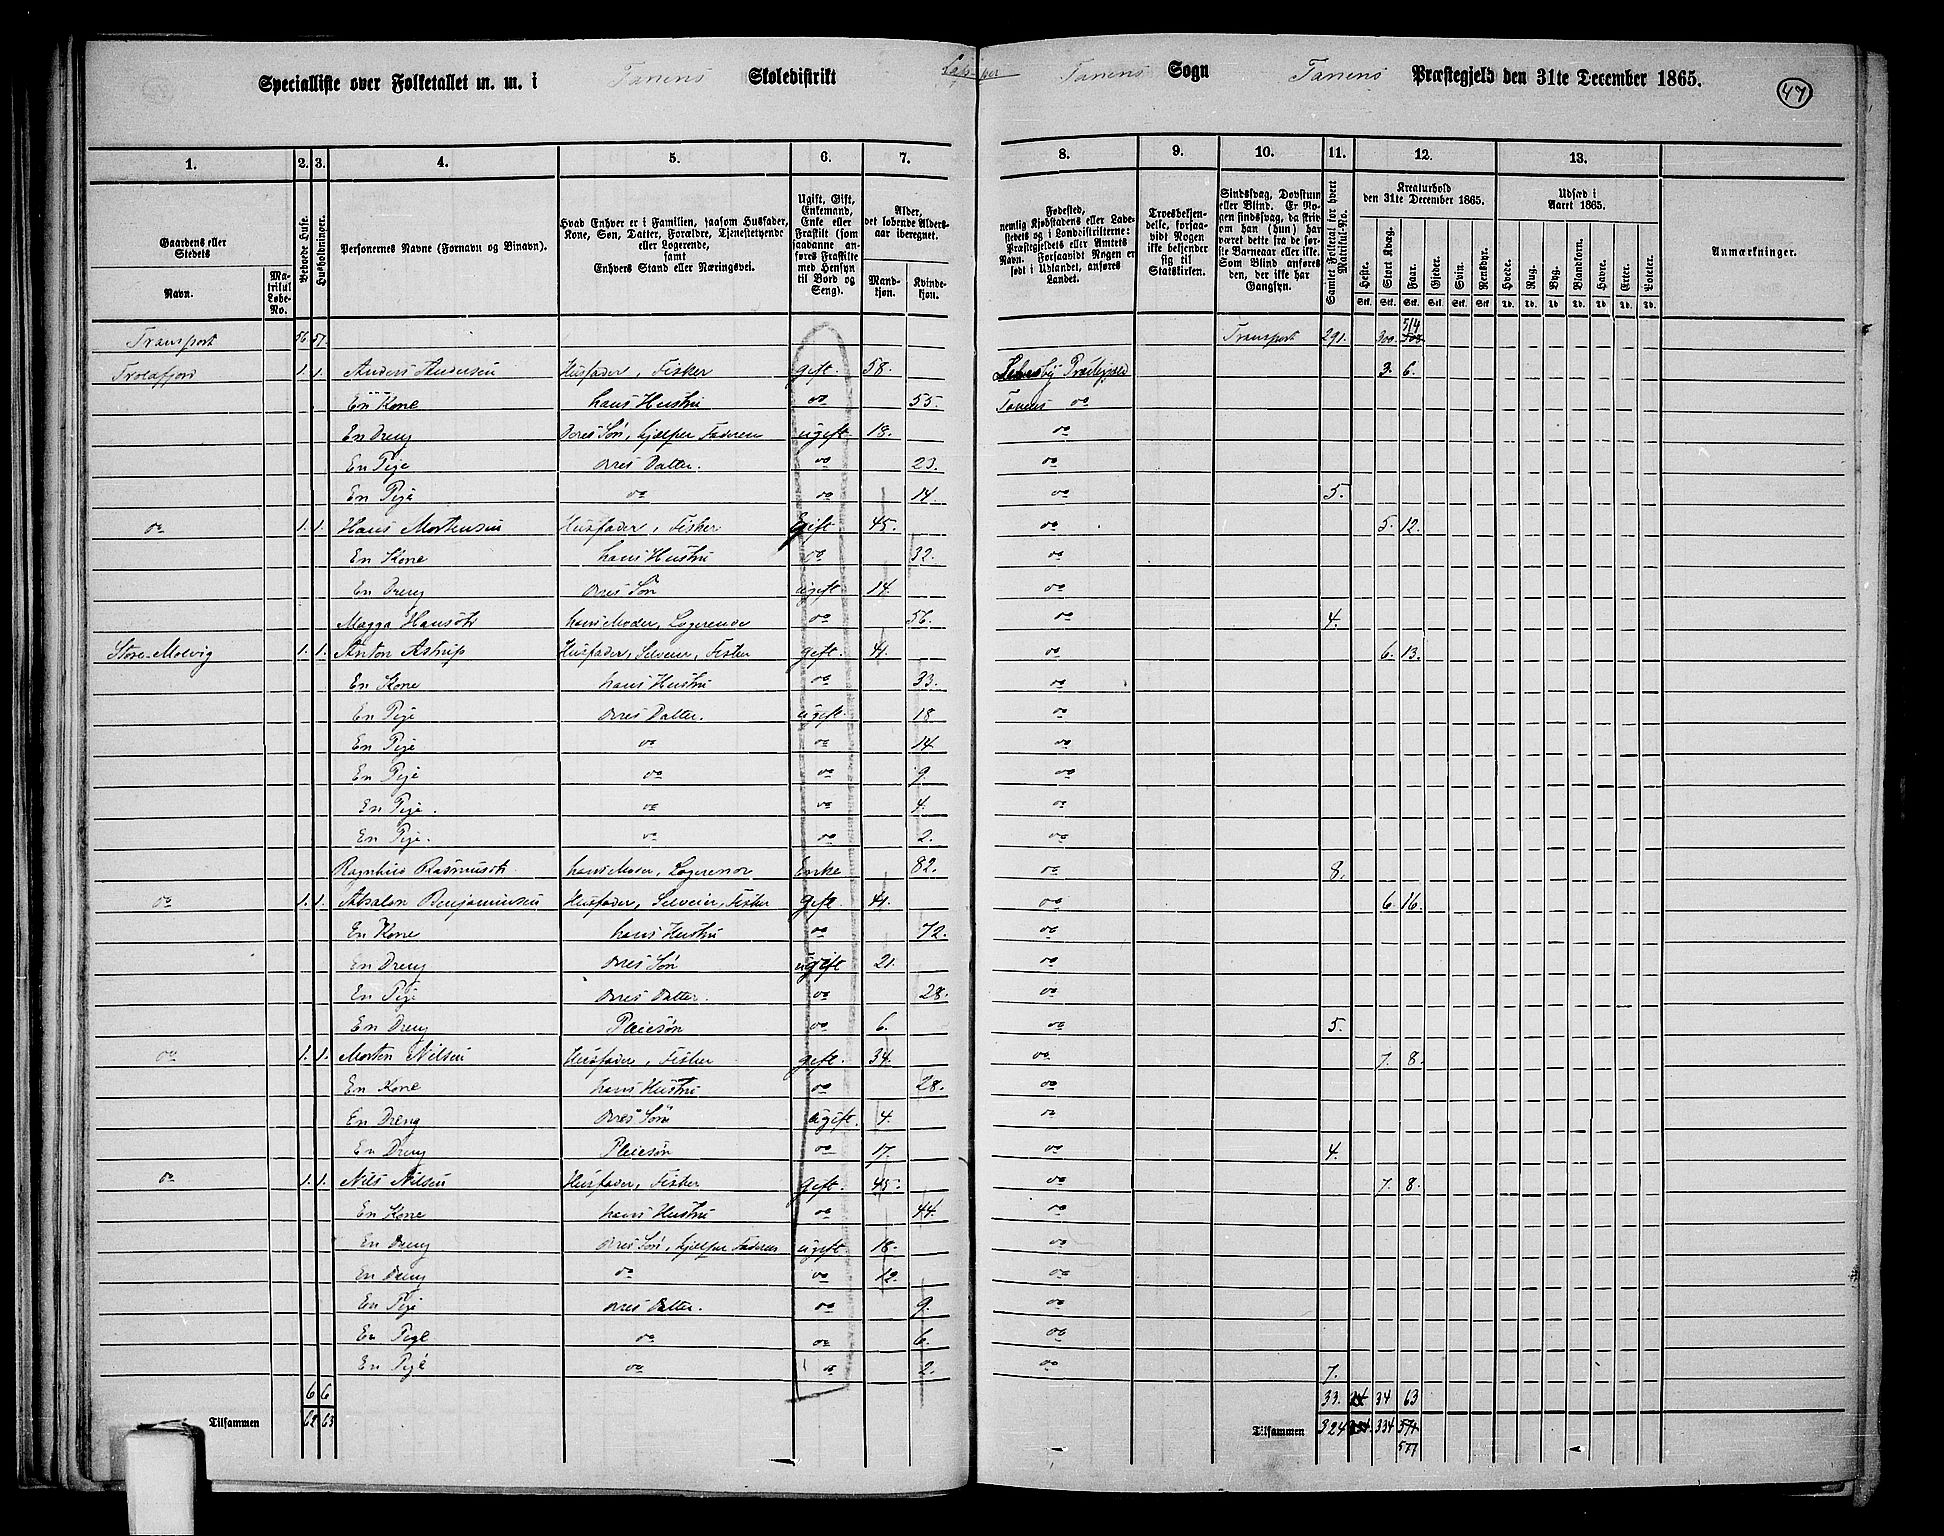 Specialliste over Folketallet m. m. i Tanens Skoledistrikt
Tanens Sogn Tanens Præstegjeld den 31te December 1865.
47
1. 2. 3. 4. 5. 6. 7. 8. 9. 10. 11. 12. 13.
Gaardens eller Stedets Navn.
Matrikul Løbe-No.
Beboede Huse.
Husholdninger.
Personernes Navne (Fornavn og Binavn).
Hvad Enhver er i Familien, saasom Husfader, Kone, Søn, Datter, Forældre, Tjenestetyende eller Logerende, samt Enhvers Stand eller Næringsvei.
Ugift, Gift, Enkemand, Enke eller Fraskilt (som saadanne anføres Fraskilte med Hensyn til Bord og Seng).
Alder, det løbende Alders-aar iberegnet.
Mandkjøn. Kvindekjøn.
Fødested, nemlig Kjøbstadens eller Ladestedets og i Landdistrikterne: Præstegjeldets eller Amtets Navn. Forsaavidt Nogen er født i Udlandet, anføres Landet.
Troesbekjendelse, forsaavidt Nogen ikke bekjender sig til Statskirken.
Sindssvag, Døvstum eller Blind. Er Nogen sindssvag, da skrives om han (hun) har været dette fra de første Barneaar eller ikke. Som Blind anføres den, der ikke har Gangsyn.
Samlet Folketal for hvert Matrikul-No.
Kreaturhold den 31te December 1865.
Heste. Stort Kvæg. Faar. Gjeder. Svin. Rensdyr.
Udsæd i Aaret 1865.
Hvede. Rug. Byg. Blandkorn. Havre. Erter. Poteter.
Anmærkninger.
Transport 56 57 Transport 291. 300 514
Trolafjord 1. 1. Anders Andersen Husfader, Fisker gift 58. Lebesby Præstegjeld 3. 6.
En Kone hans Hustru do 55. Tanens do
En Dreng Deres Søn, hjelper Faderen ugift 18. do
En Pige Deres Datter. do 23. do
En Pige do do 14. do 5.
do 1. 1. Hans Mortensen Husfader, Fisker Gift 45. do 5. 12.
En Kone hans Hustru do 32. do
En Dreng Deres Søn ugift 14. do
Magga Hansdtr hans Moder, Logerende do 56. do 4.
Store-Molvig 1. 1. Anton Astrup Husfader, Selveier, Fisker gift. 41. do 6. 13.
En Kone hans Hustru do 33. do
En Pige Deres Datter. ugift. 18 do
En Pige do do 14. do
En Pige do do 9. do
En Pige. do do 4. do
En Pige. do do 2. do
Ragnhild Rasmusdt hans Moder, Logerende Enke 82. do 8.
do 1. 1. Absalon Benjaminsen Husfader, Selveier, Fisker gift. 41. do 6. 16.
En Kone hans Hustru do 72. do
En Dreng Deres Søn ugift 21. do
En Pige Deres Datter. do 28. do
En Dreng Pleiesøn do 6. do 5.
do 1. 1. Morten Nilsen Husfader, Fisker gift. 34. do 7. 8.
En Kone hans Hustru do 28. do
En Dreng Deres Søn ugift. 4. do
En Dreng Pleiesøn do 17. do 4.
do 1. 1. Nils Nilsen Husfader, Fisker gift. 45. do 7. 8.
En Kone hans Hustru do 44. do
En Dreng Deres Søn, hjelper Faderen ugift 18. do
En Dreng do do 12. do
En Pige Deres Datter. do 9. do
En Pige do do 6. do
En Pige do do 2. do 7.
6 6 33. 34 63
Tilsammen 62 63 Tilsammen 324 334 577